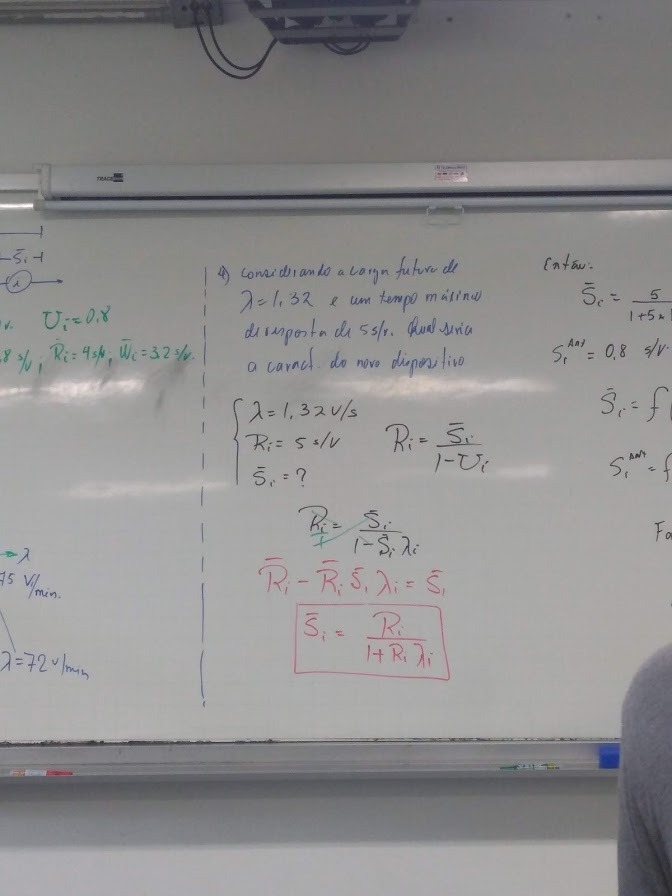 TRACE
S̄i
λ
v. Ui = 0,8
8 s/v, R̄i = 4 s/v, W̄i = 3,2 s/v.
λ
75 v/min.
λ = 72 v/min
4) Considerando a carga futura de
λ = 1,32 e um tempo máximo
de resposta de 5 s/v. Qual seria
a caract. do novo dispositivo
λ = 1,32 v/s
Ri = 5 s/v
S̄i = ?
Ri = S̄i / 1 - Ui
Ri / 1 = S̄i / 1 - S̄i λi
R̄i - R̄i S̄i λi = S̄i
S̄i = Ri / 1 + Ri λi
Então:
S̄i = 5 / 1 + 5 ×
Si^Ant = 0,8 s/v.
S̄i = f
Si^Ant = f